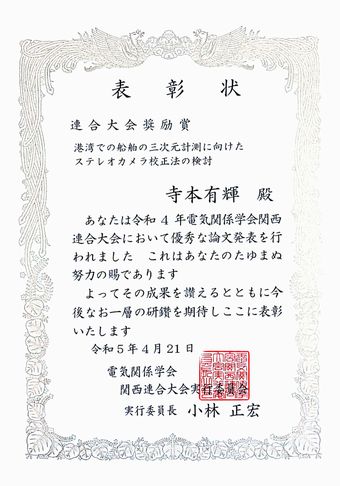 表彰状
連合大会奨励賞
港湾での船舶の三次元計測に向けた
ステレオカメラ校正法の検討
寺本有輝 殿
あなたは令和4年電気関係学会関西
連合大会において優秀な論文発表を行
われました これはあなたのたゆまぬ
努力の賜であります
よってその成果を讃えるとともに今
後なお一層の研鑽を期待しここに表彰
いたします
令和5年4月21日
電気関係学会
関西連合大会実行委員会
実行委員長 小林 正宏